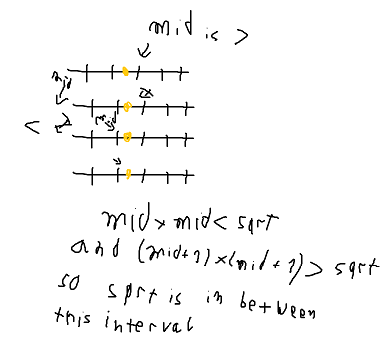 mid is >
mid
mid
<
mid × mid < sqrt
and (mid+1) × (mid+1) > sqrt
so sqrt is in between
this interval